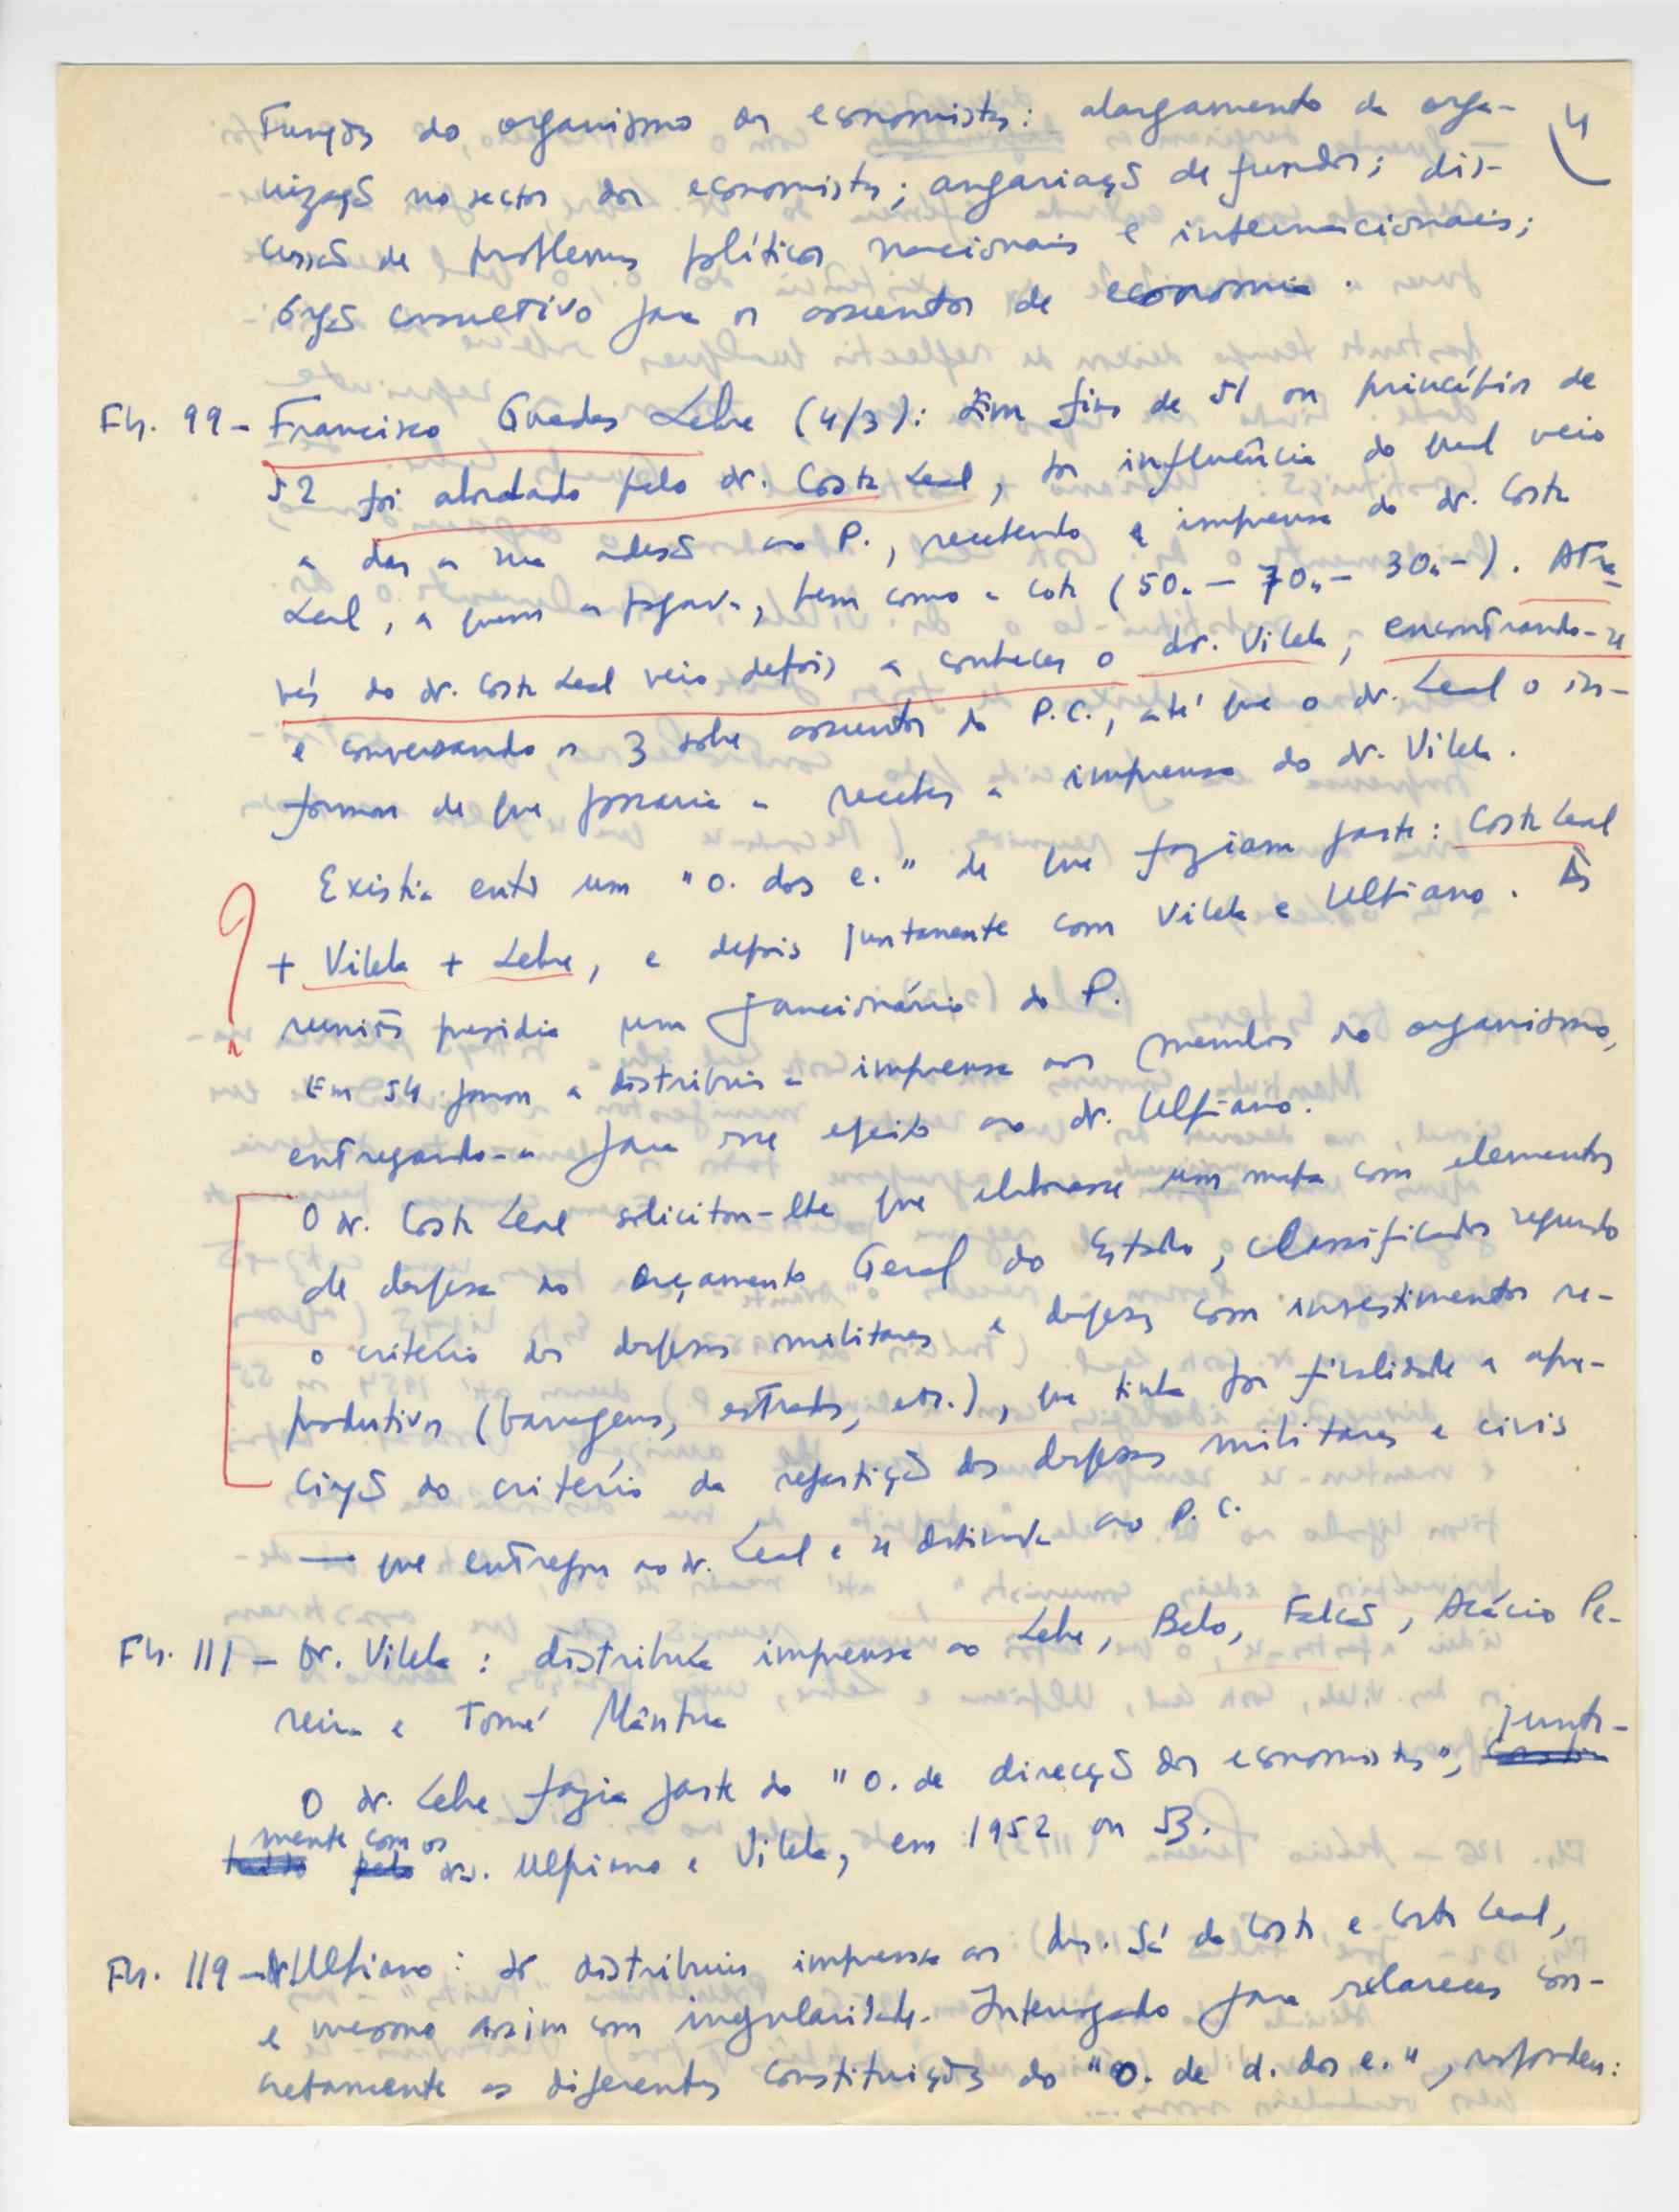 Funções do organismo dos economistas: alargamento da orga- 4
nização no sector dos economistas; angariação de fundos; dis-
cussão de problemas políticos nacionais e internacionais;
órgão consultivo para os assuntos de economia.
Fls. 99 - Francisco Guedes Lebre (4/3): Em fins de 51 ou princípios de
52 foi abordado pelo dr. Costa Leal, por influência do qual veio
a dar a sua adesão ao P., recebendo a imprensa do dr. Costa
Leal, a quem a pagava, bem como a cota (50.- 70.- 30.-). Atra-
vés do dr. Costa Leal veio depois a conhecer o dr. Vilela, encontrando-se
e conversando os 3 sobre assuntos do P.C., até que o dr. Leal o in-
formou de que passaria a receber a imprensa do dr. Vilela.
Existia então um "o. dos e." de que faziam parte: Costa Leal
+ Vilela + Lebre, e depois juntamente com Vilela e Ulpiano. Às
reuniões presidia um funcionário do P.
Em 54 passou a distribuir a imprensa aos membros do organismo,
entregando-a para esse efeito ao dr. Ulpiano.
O dr. Costa Leal solicitou-lhe que elaborasse um mapa com elementos
de despesa do Orçamento Geral do Estado, classificados segundo
o critério das despesas militares e despesas com investimentos re-
produtivos (barragens, estradas, etc.), que tinha por finalidade a apre-
ciação do critério da repartição das despesas militares e civis
— que entregou ao dr. Leal e se destinava ao P.C.
Fls. 111 - Dr. Vilela: distribuía imprensa ao Lebre, Belo, Falcão, Acácio Pe-
reira e Tomé Mântua
O dr. Lebre fazia parte do "o. de direcção dos economistas", junta-
mente com os drs. Ulpiano e Vilela, em 1952 ou 53.
Fls. 119 - Dr. Ulpiano: só distribuiu imprensa aos drs. Sá da Costa e Costa Leal,
e mesmo assim com irregularidade. Interrogado para esclarecer con-
cretamente as diferentes constituições do "o. de d. dos e.", respondeu: